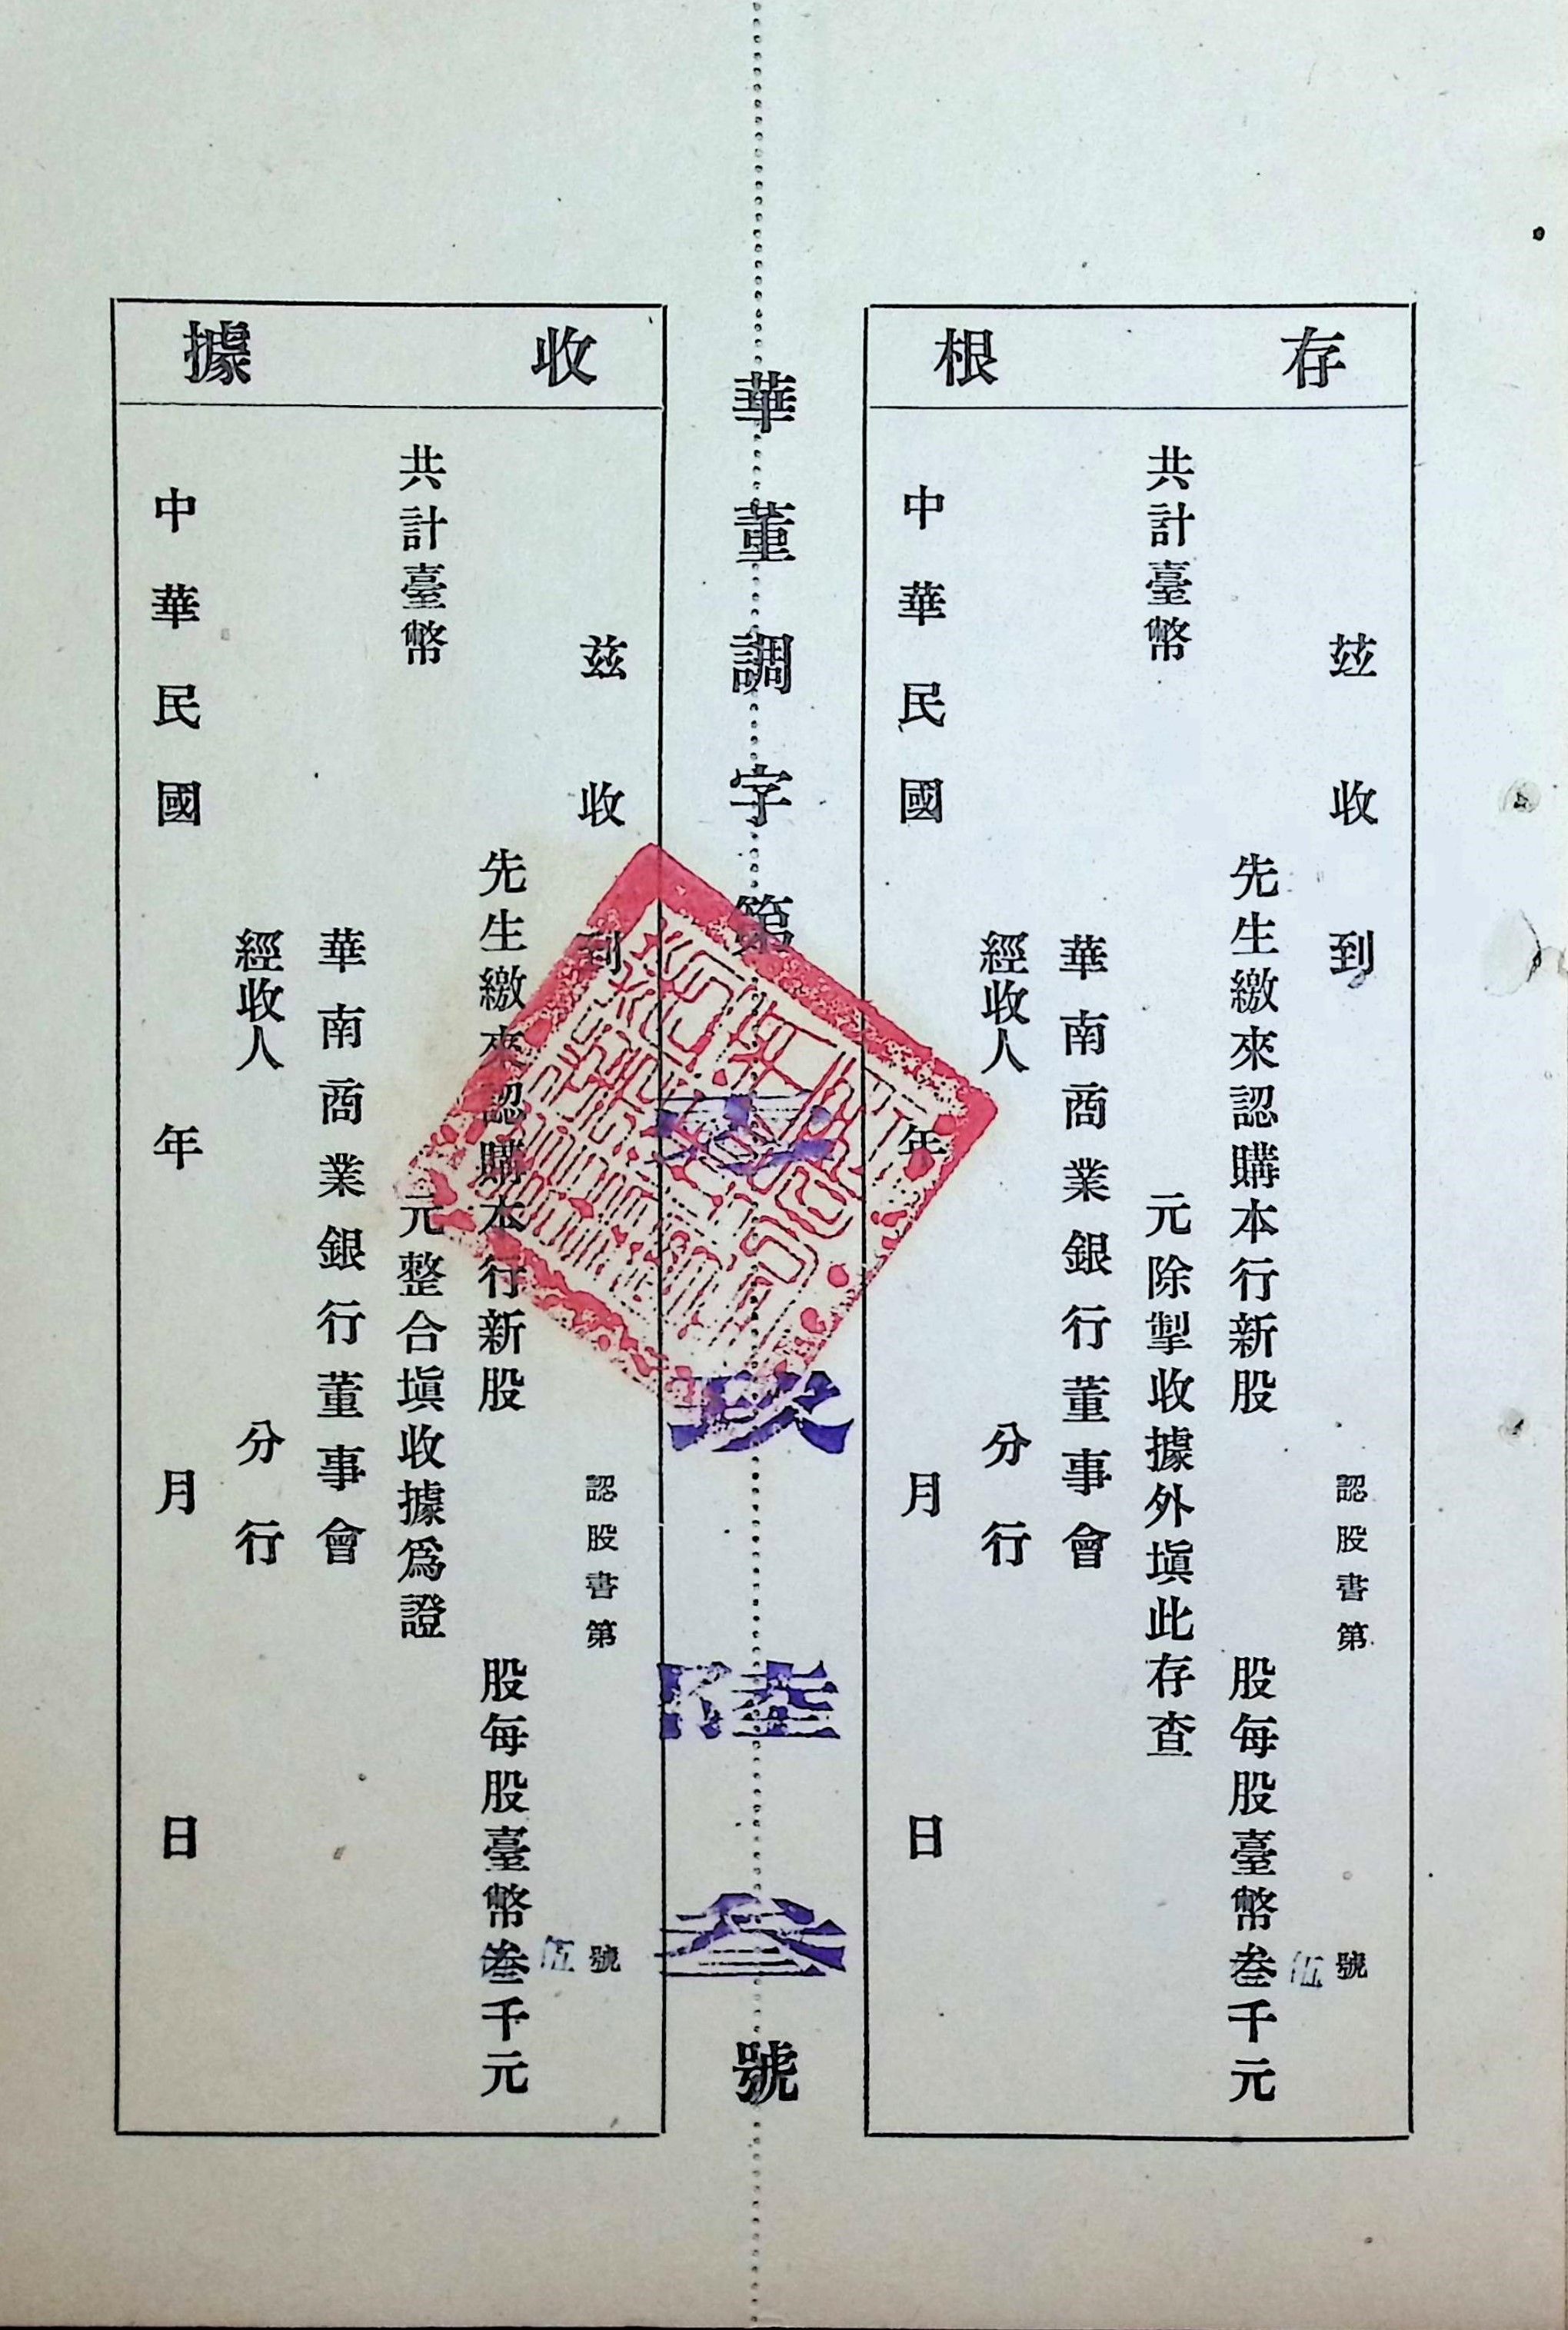 存根
茲收到
認股書第 伍 號
先生繳來認購本行新股 股每股臺幣叁千元
共計臺幣 元除掣收據外塡此存查
華南商業銀行董事會
經收人 分行
中華民國 年 月 日
華董調字第 玖陸叁號
收據
兹收到
認股書第 伍 號
先生繳來認購本行新股 股每股臺幣叁千元
共計臺幣 元整合塡收據爲證
華南商業銀行董事會
經收人 分行
中華民國 年 月 日